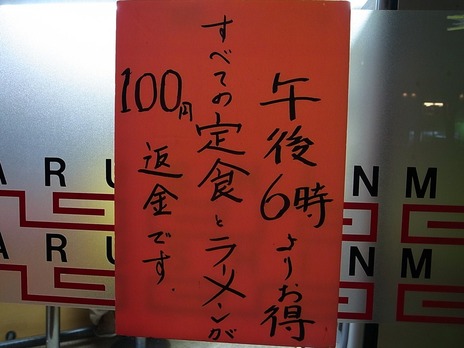 午後6時よりお得
すべての定食とラーメンが
100円返金です.
ARU
NM
ARU
NM